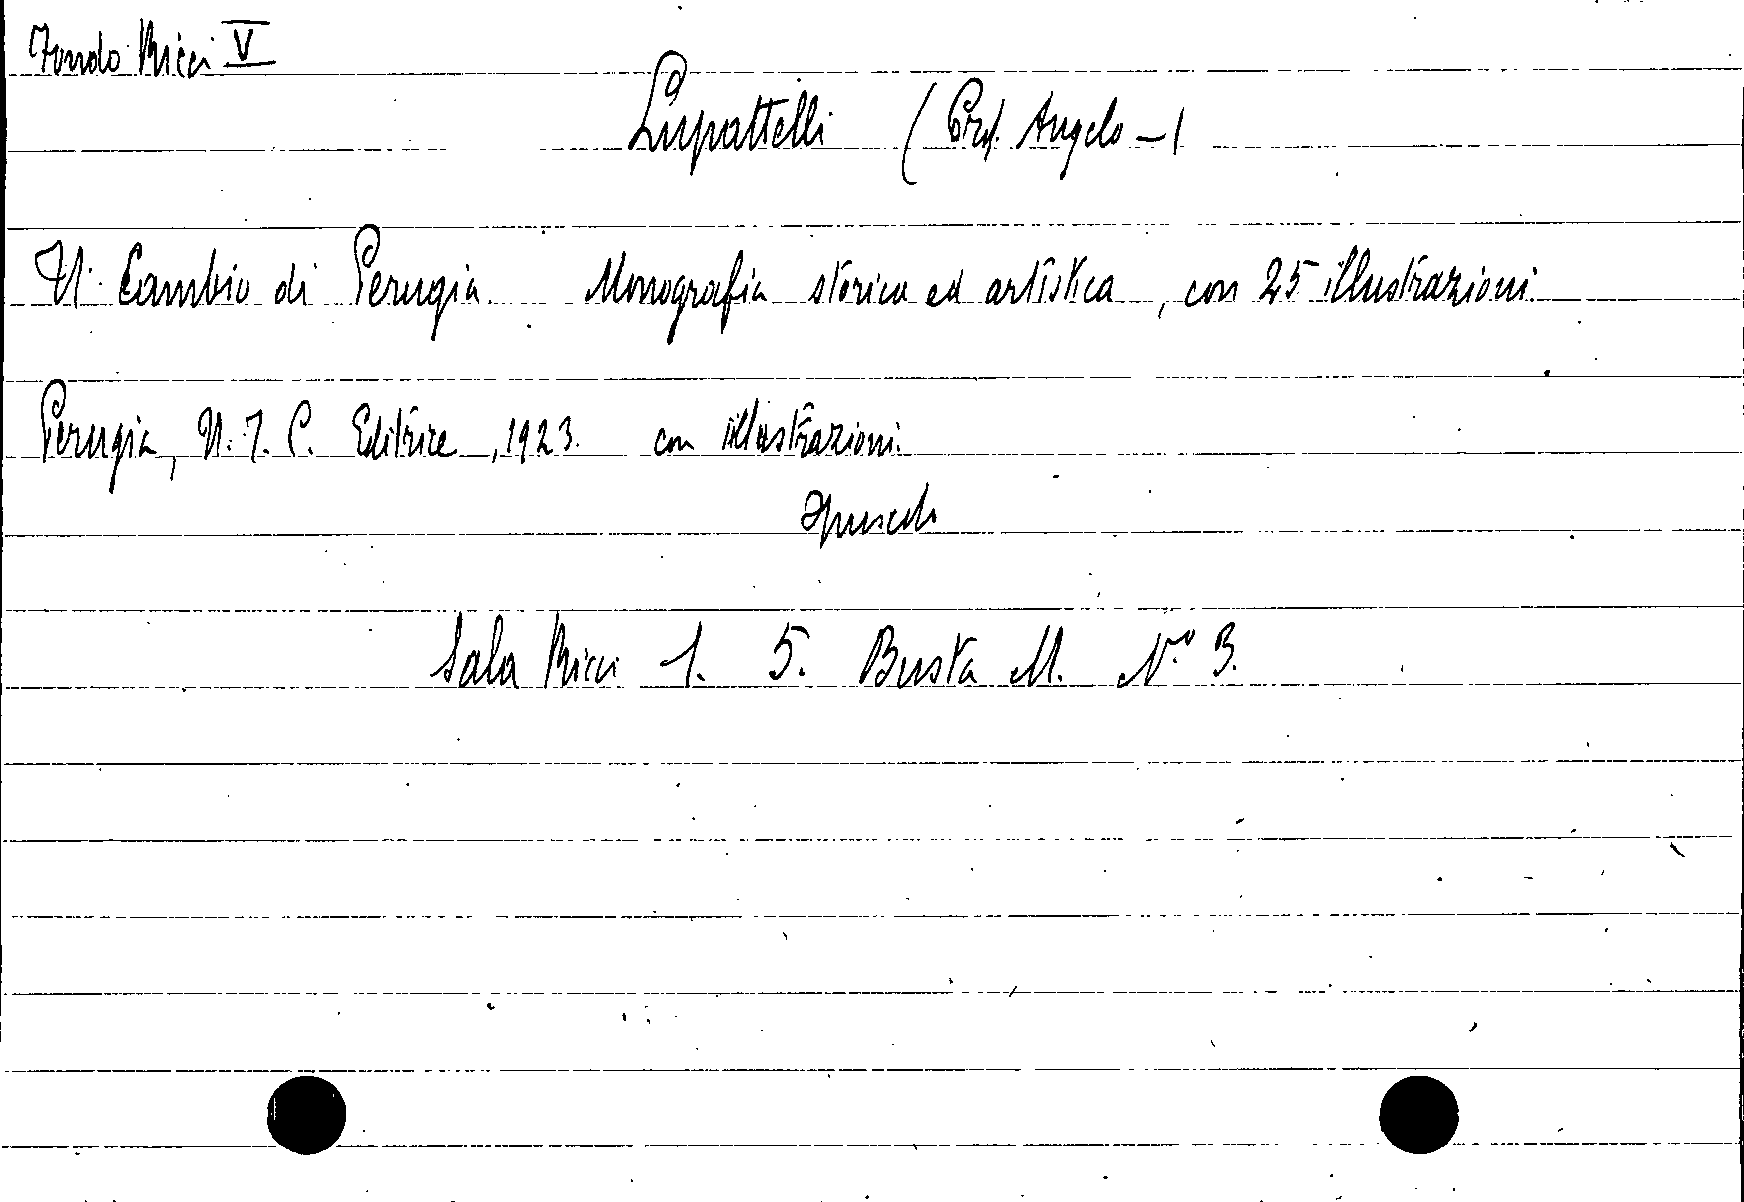 Fondo Ricci V
Lupattelli (Prof. Angelo -)
Il Cambio di Perugia. Monografia storica ed artistica, con 25 illustrazioni.
Perugia, U.T.P. Editrice, 1923. con illustrazioni.
Opuscolo
Sala Ricci 1. 5. Busta M. N.° 3.